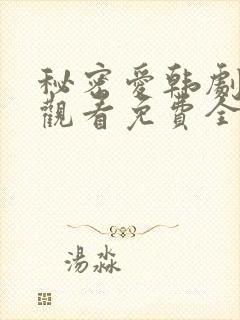 秘密愛韩劇
觀看免費全
湯淼